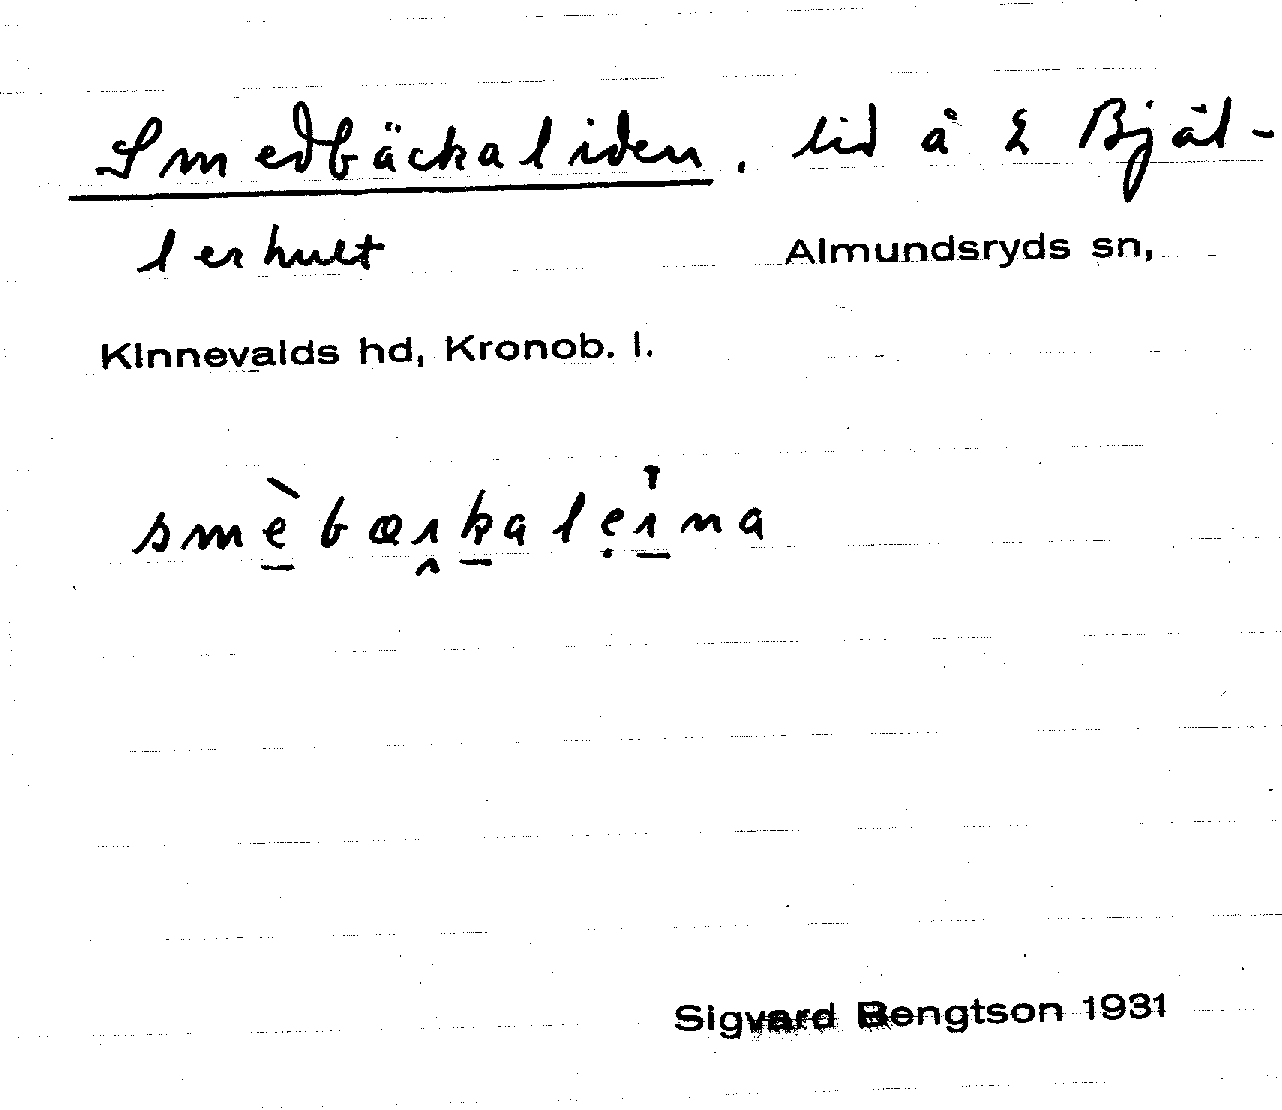 Smedbäckaliden. lid å L Bjäl-
lerhult Almundsryds sn,
Kinnevalds hd, Kronob. l.
smèbæıkaleına
Sigvard Bengtson 1931